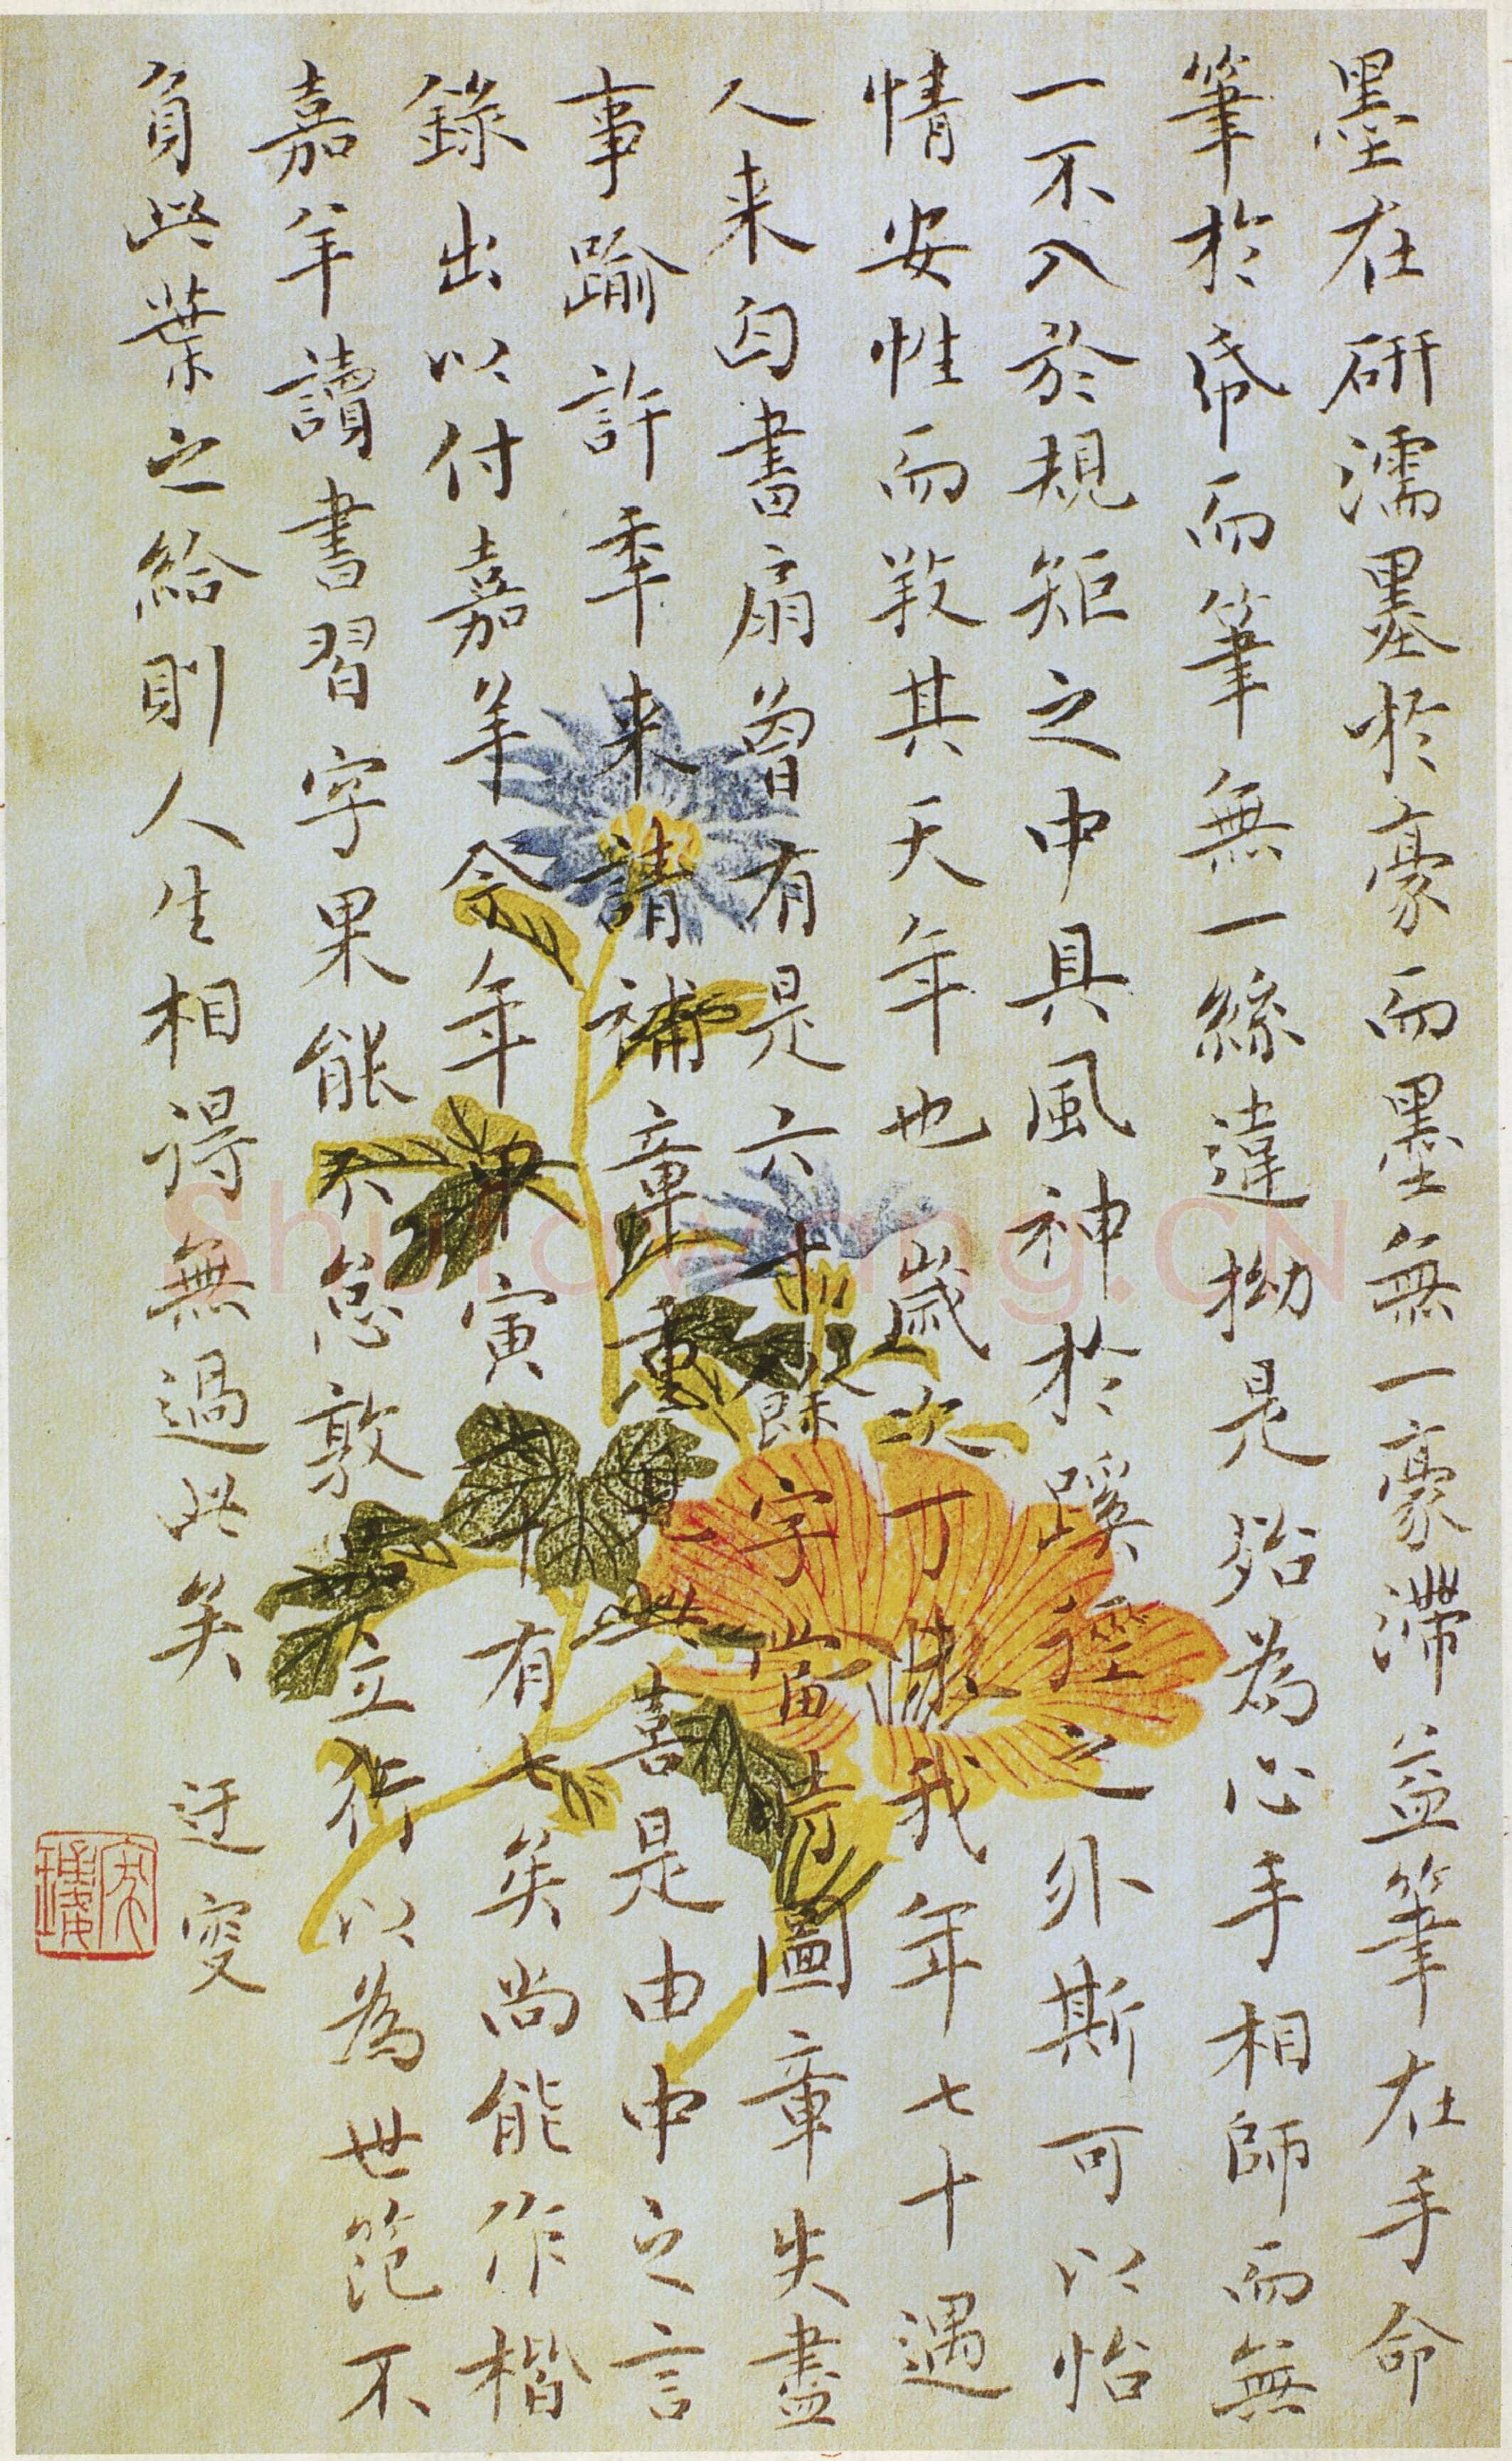 墨在研濡墨於豪而墨無一豪滯益筆在手命
筆於帋而筆無一絲違拗是殆為心手相師而無
一不入於規矩之中具風神於蹊徑之外斯可以怡
情安性而羖其天年也歲次丁未我年七十遇
人来匄書扇曾有是六十餘字當奇圖章失盡
事踰許季来請補章重見此喜是由中之言
錄出以付嘉羊今年甲寅年有七矣尚能作楷
嘉羊讀書習字果能不怠敦立行以為世范不
負此葉之給則人生相得無過此矣 迂叟
ShufaWang.CN